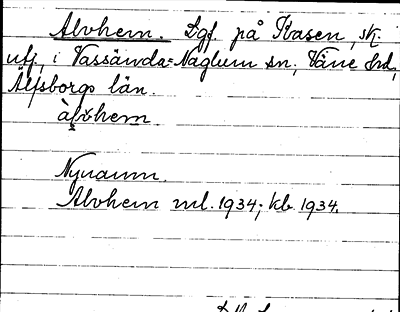 Alvhem. Lgf. på Åasen, sk.
utj. i Vassända-Naglum sn, Väne hd,
Älfsborgs län.
àlvhem
Nynamn.
Alvhem ml. 1934; kb 1934.